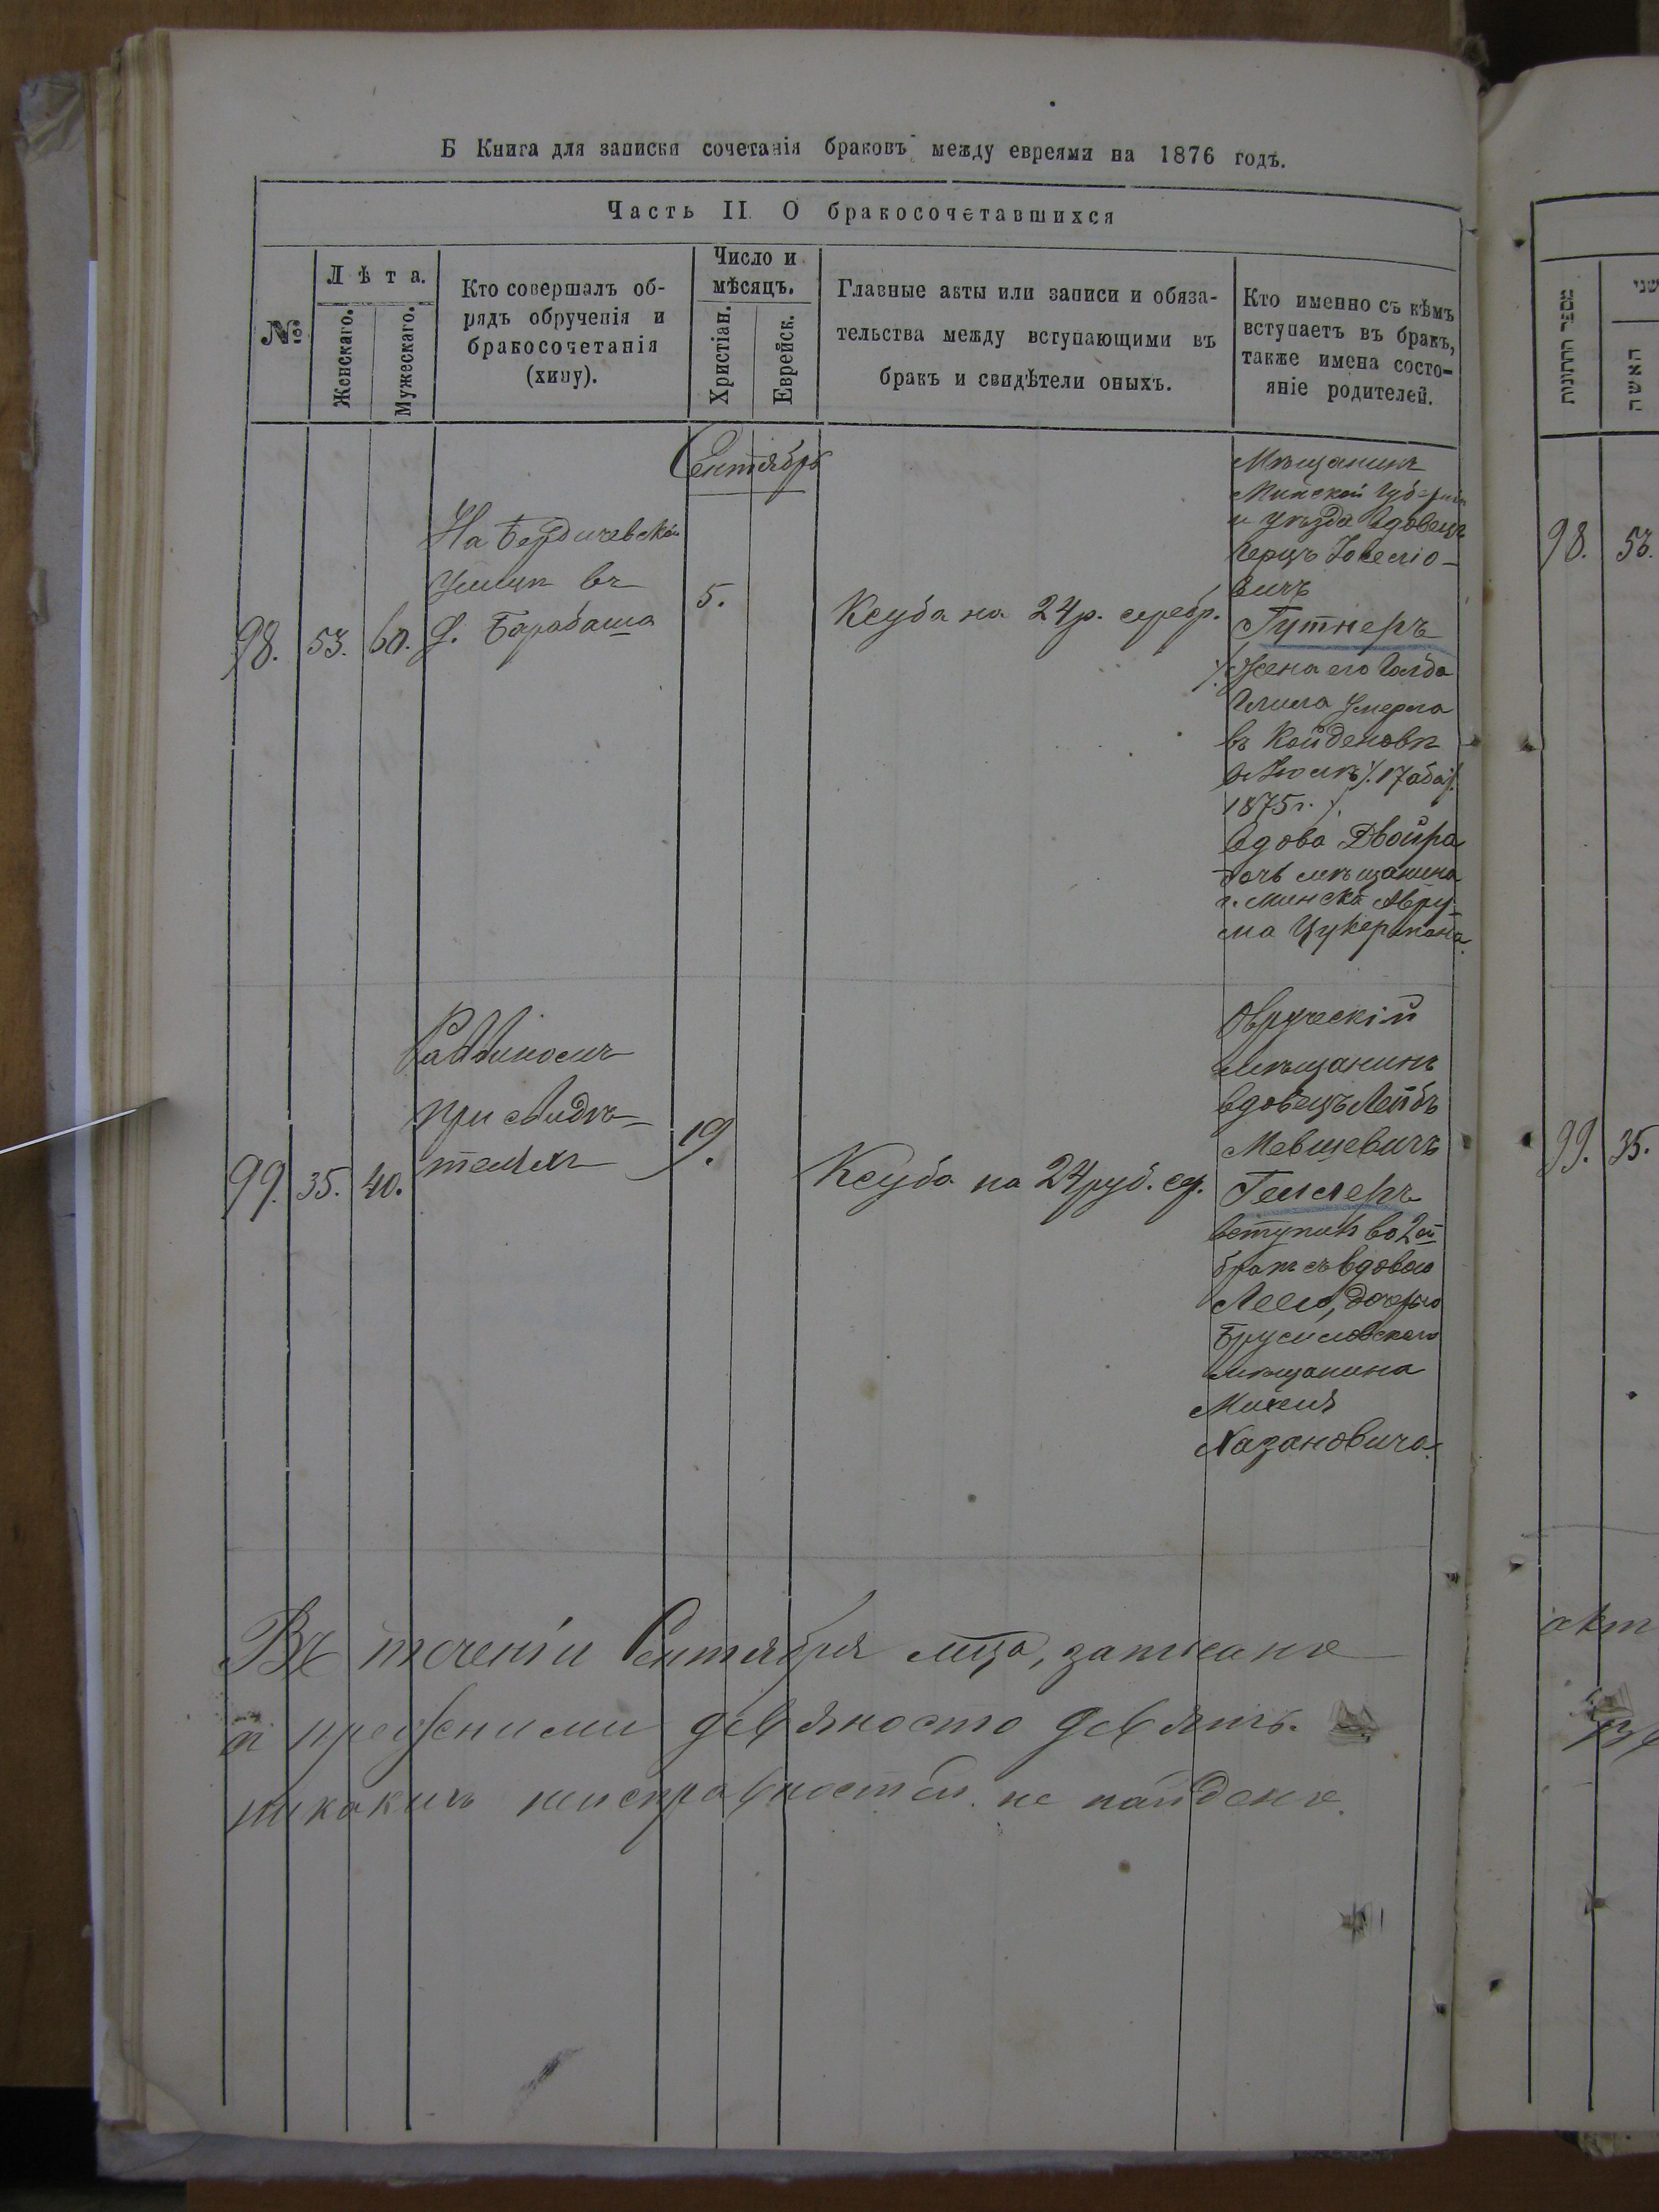 Б Книга для записки сочетанія браковъ между евреями на 1876 годъ.
Часть II. О бракосочетавшихся
№
Лѣта.
Женскаго.
Мужескаго.
Кто совершалъ об-
рядъ обрученія и
бракосочетанія
(хипу).
Число и
мѣсяцъ.
Христіан.
Еврейск.
Главные акты или записи и обяза-
тельства между вступающими въ
бракъ и свидѣтели оныхъ.
Кто именно съ кѣмъ
вступаетъ въ бракъ,
также имена состо-
яніе родителей.
Сентябрь
98.
53.
60.
На Бердичевской
улицѣ въ
д. Барабаша
5.
Ксуба на 24 р. серебр.
Мѣщанинъ
Минской Губерніи
и уѣзда вдовецъ
Герцъ
вичъ
Гутнеръ
/. Жена его
умерла
въ Койдановѣ
17 аба
1875 г. /.
Вдова Двойра
дочь мѣщанина
г. Минска Авру-
ма Цукермана.
99.
35.
40.
Раввиномъ
при свидѣ-
теляхъ
19.
Ксуба на 24 руб. ср.
Овручскій
мѣщанинъ
вдовецъ Лейбъ
Мевшевичъ
Геллеръ
вступилъ во 2й
бракъ съ вдовою
Леею, дочерью
Брусиловскаго
мѣщанина
Михеля
Хазановича.
Въ теченіи Сентября мца, записано
съ прежними девяносто девять.
никакихъ неисправностей не найдено.
מספר החתונות
האשה
שני
98.
53.
99.
35.
акт